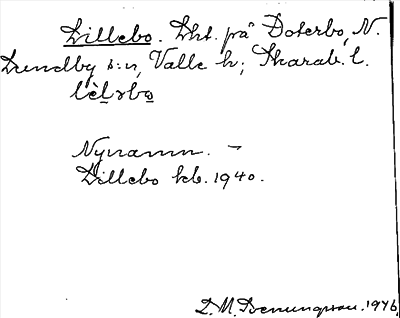 Lillebo. Lht. på Doterbo, N.
Lundby s:n, Valle h; Skarab. l.
lèl̲ɔbo̲
Nynamn. –
Lillebo kb. 1940.
D. M. 1946.